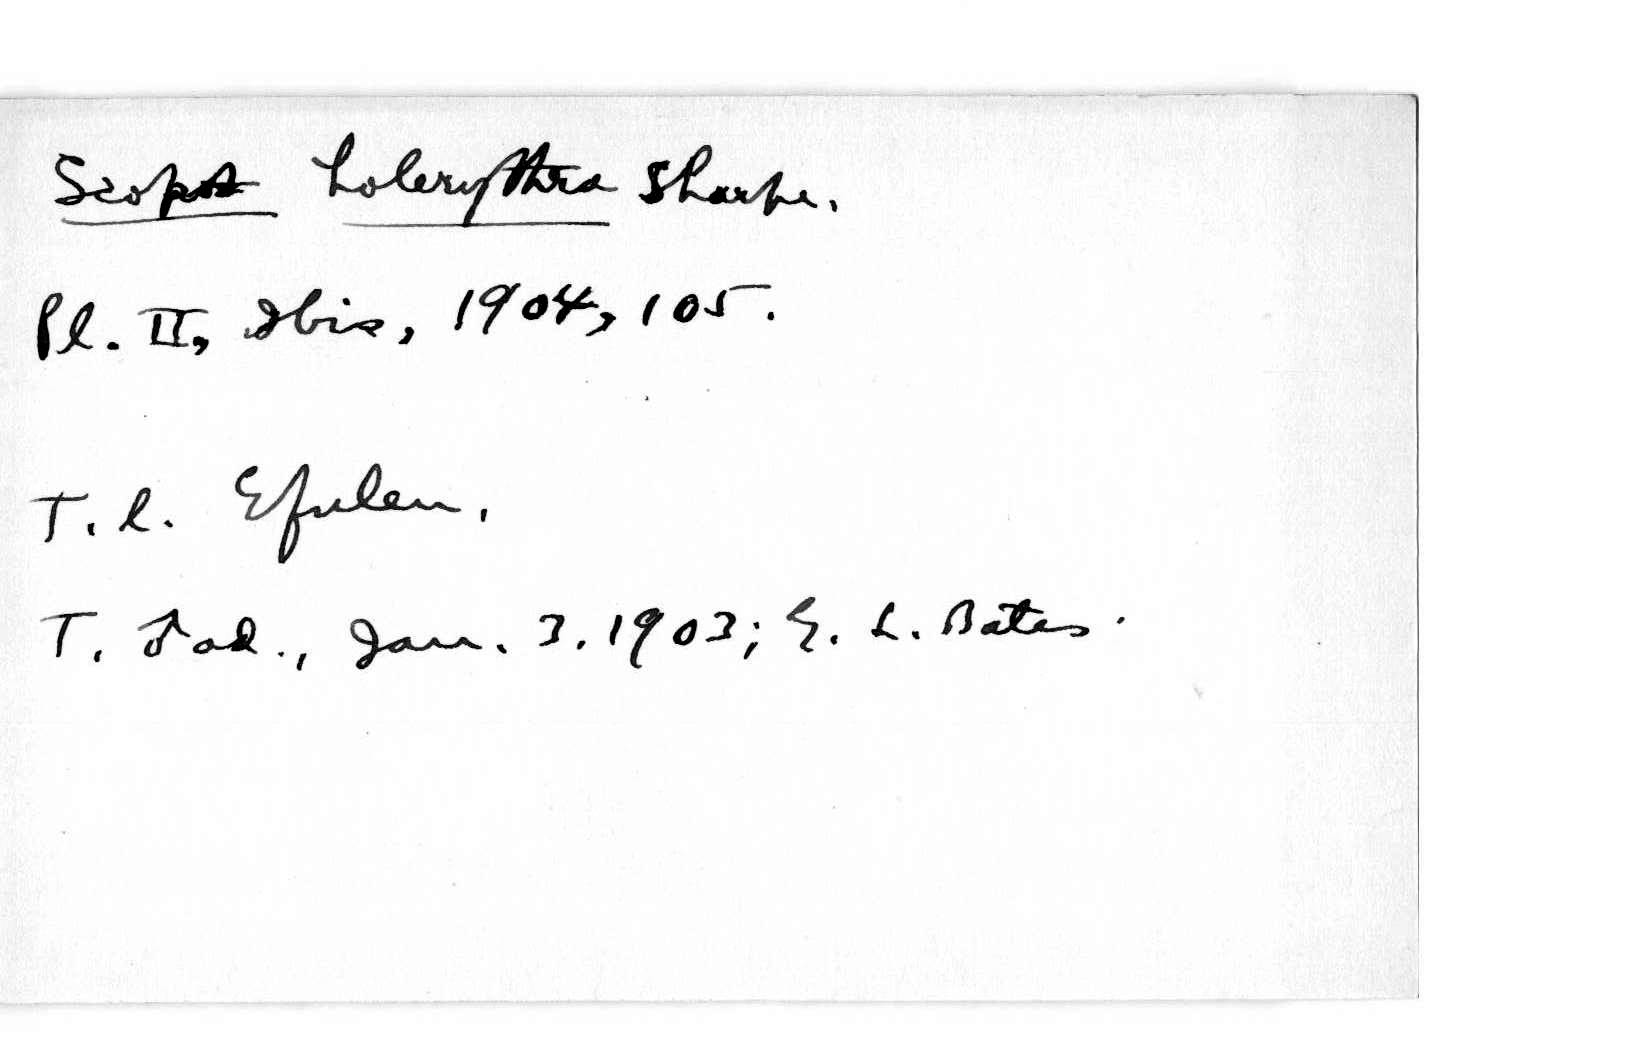 Scops holerythra Sharpe.
Pl. II, Ibis, 1904, 105.
T. l. Efulen.
T. ♂ ad., Jan. 3. 1903; G. L. Bates.